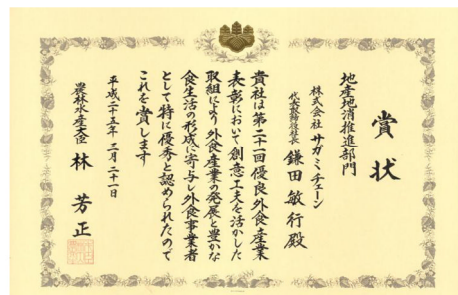 賞状
地産地消推進部門
株式会社 サガミチェーン
代表取締役社長 鎌田敏行殿
貴社は第二十一回優良外食産業
表彰において創意工夫を活かした
取組により外食産業の発展と豊かな
食生活の形成に寄与し外食事業者
として特に優秀と認められたので
これを賞します
平成二十五年 二月二十一日
農林水産大臣 林 芳正